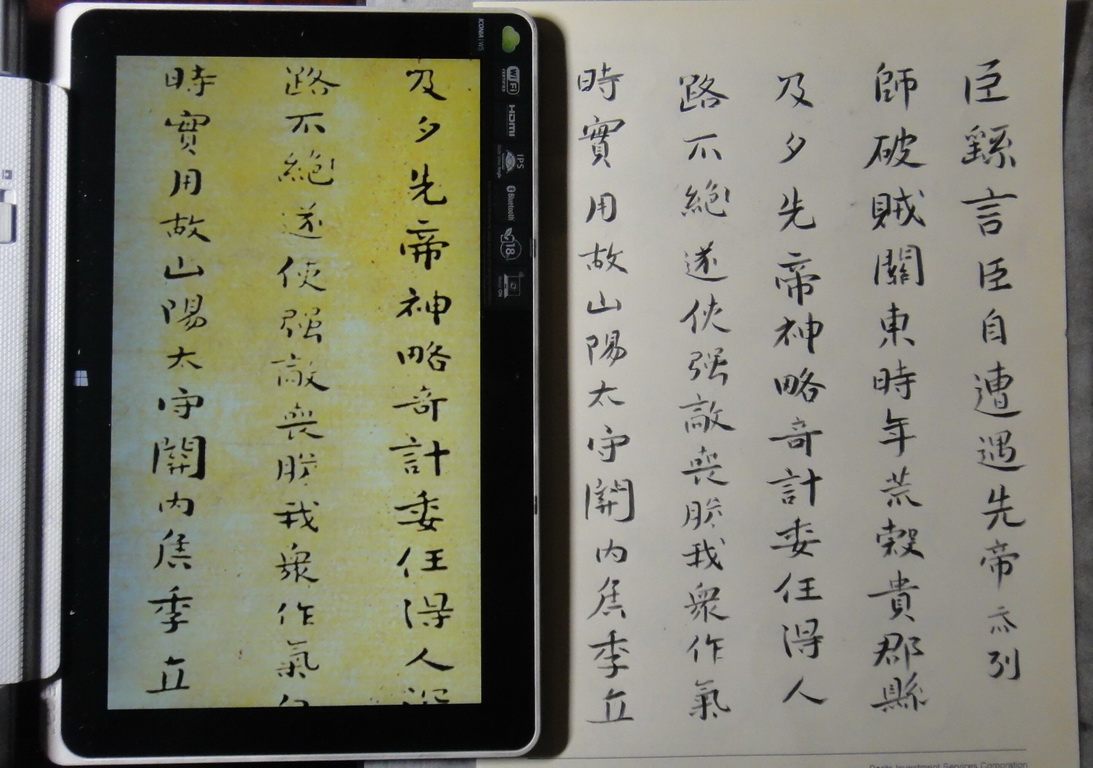 臣繇言臣自遭遇先帝忝列
師破賊關東時年荒穀貴郡縣
及夕先帝神略奇計委任得人
路不絕遂使强敵喪胅我衆作氣
時實用故山陽太守關內焦季立
及夕先帝神略奇計委任得人深
路不絕遂使强敵喪胅我衆作氣
時實用故山陽太守關內焦季立
ICONIA
WiFi
HDMI
IPS
Bluetooth
18
Investment Services Corporation